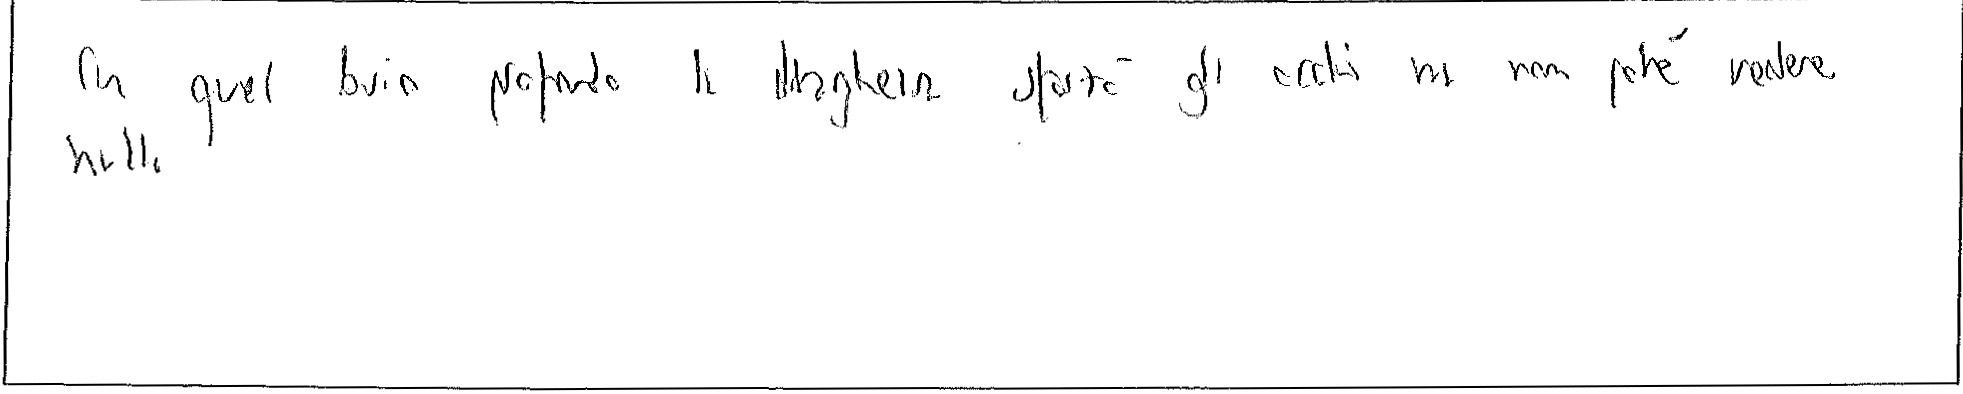 In quel buio profondo la preghiera spostò gli occhi ma non poté vedere
nulla